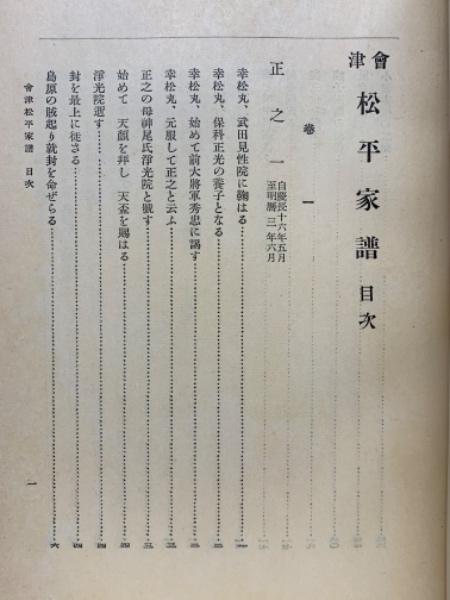 會津 松平家譜 目次
卷一
正之一 自慶長十六年五月至明曆三年六月
幸松丸、武田見性院に鞠はる………一
幸松丸、保科正光の養子となる………二
幸松丸、始めて前大將軍秀忠に謁す………二
幸松丸、元服して正之と云ふ………三
正之の母神尾氏淨光院と號す………三
始めて 天顏を拜し 天盃を賜はる………四
淨光院逝す………四
封を最上に徙さる………四
島原の賊起り就封を命ぜらる………六
會津松平家譜 目次
一